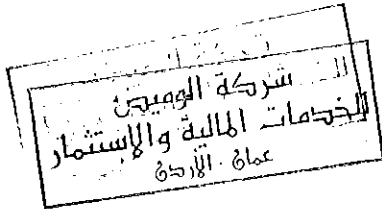 شركة الوميض
للخدمات المالية والإستثمار
عمان - الأردن